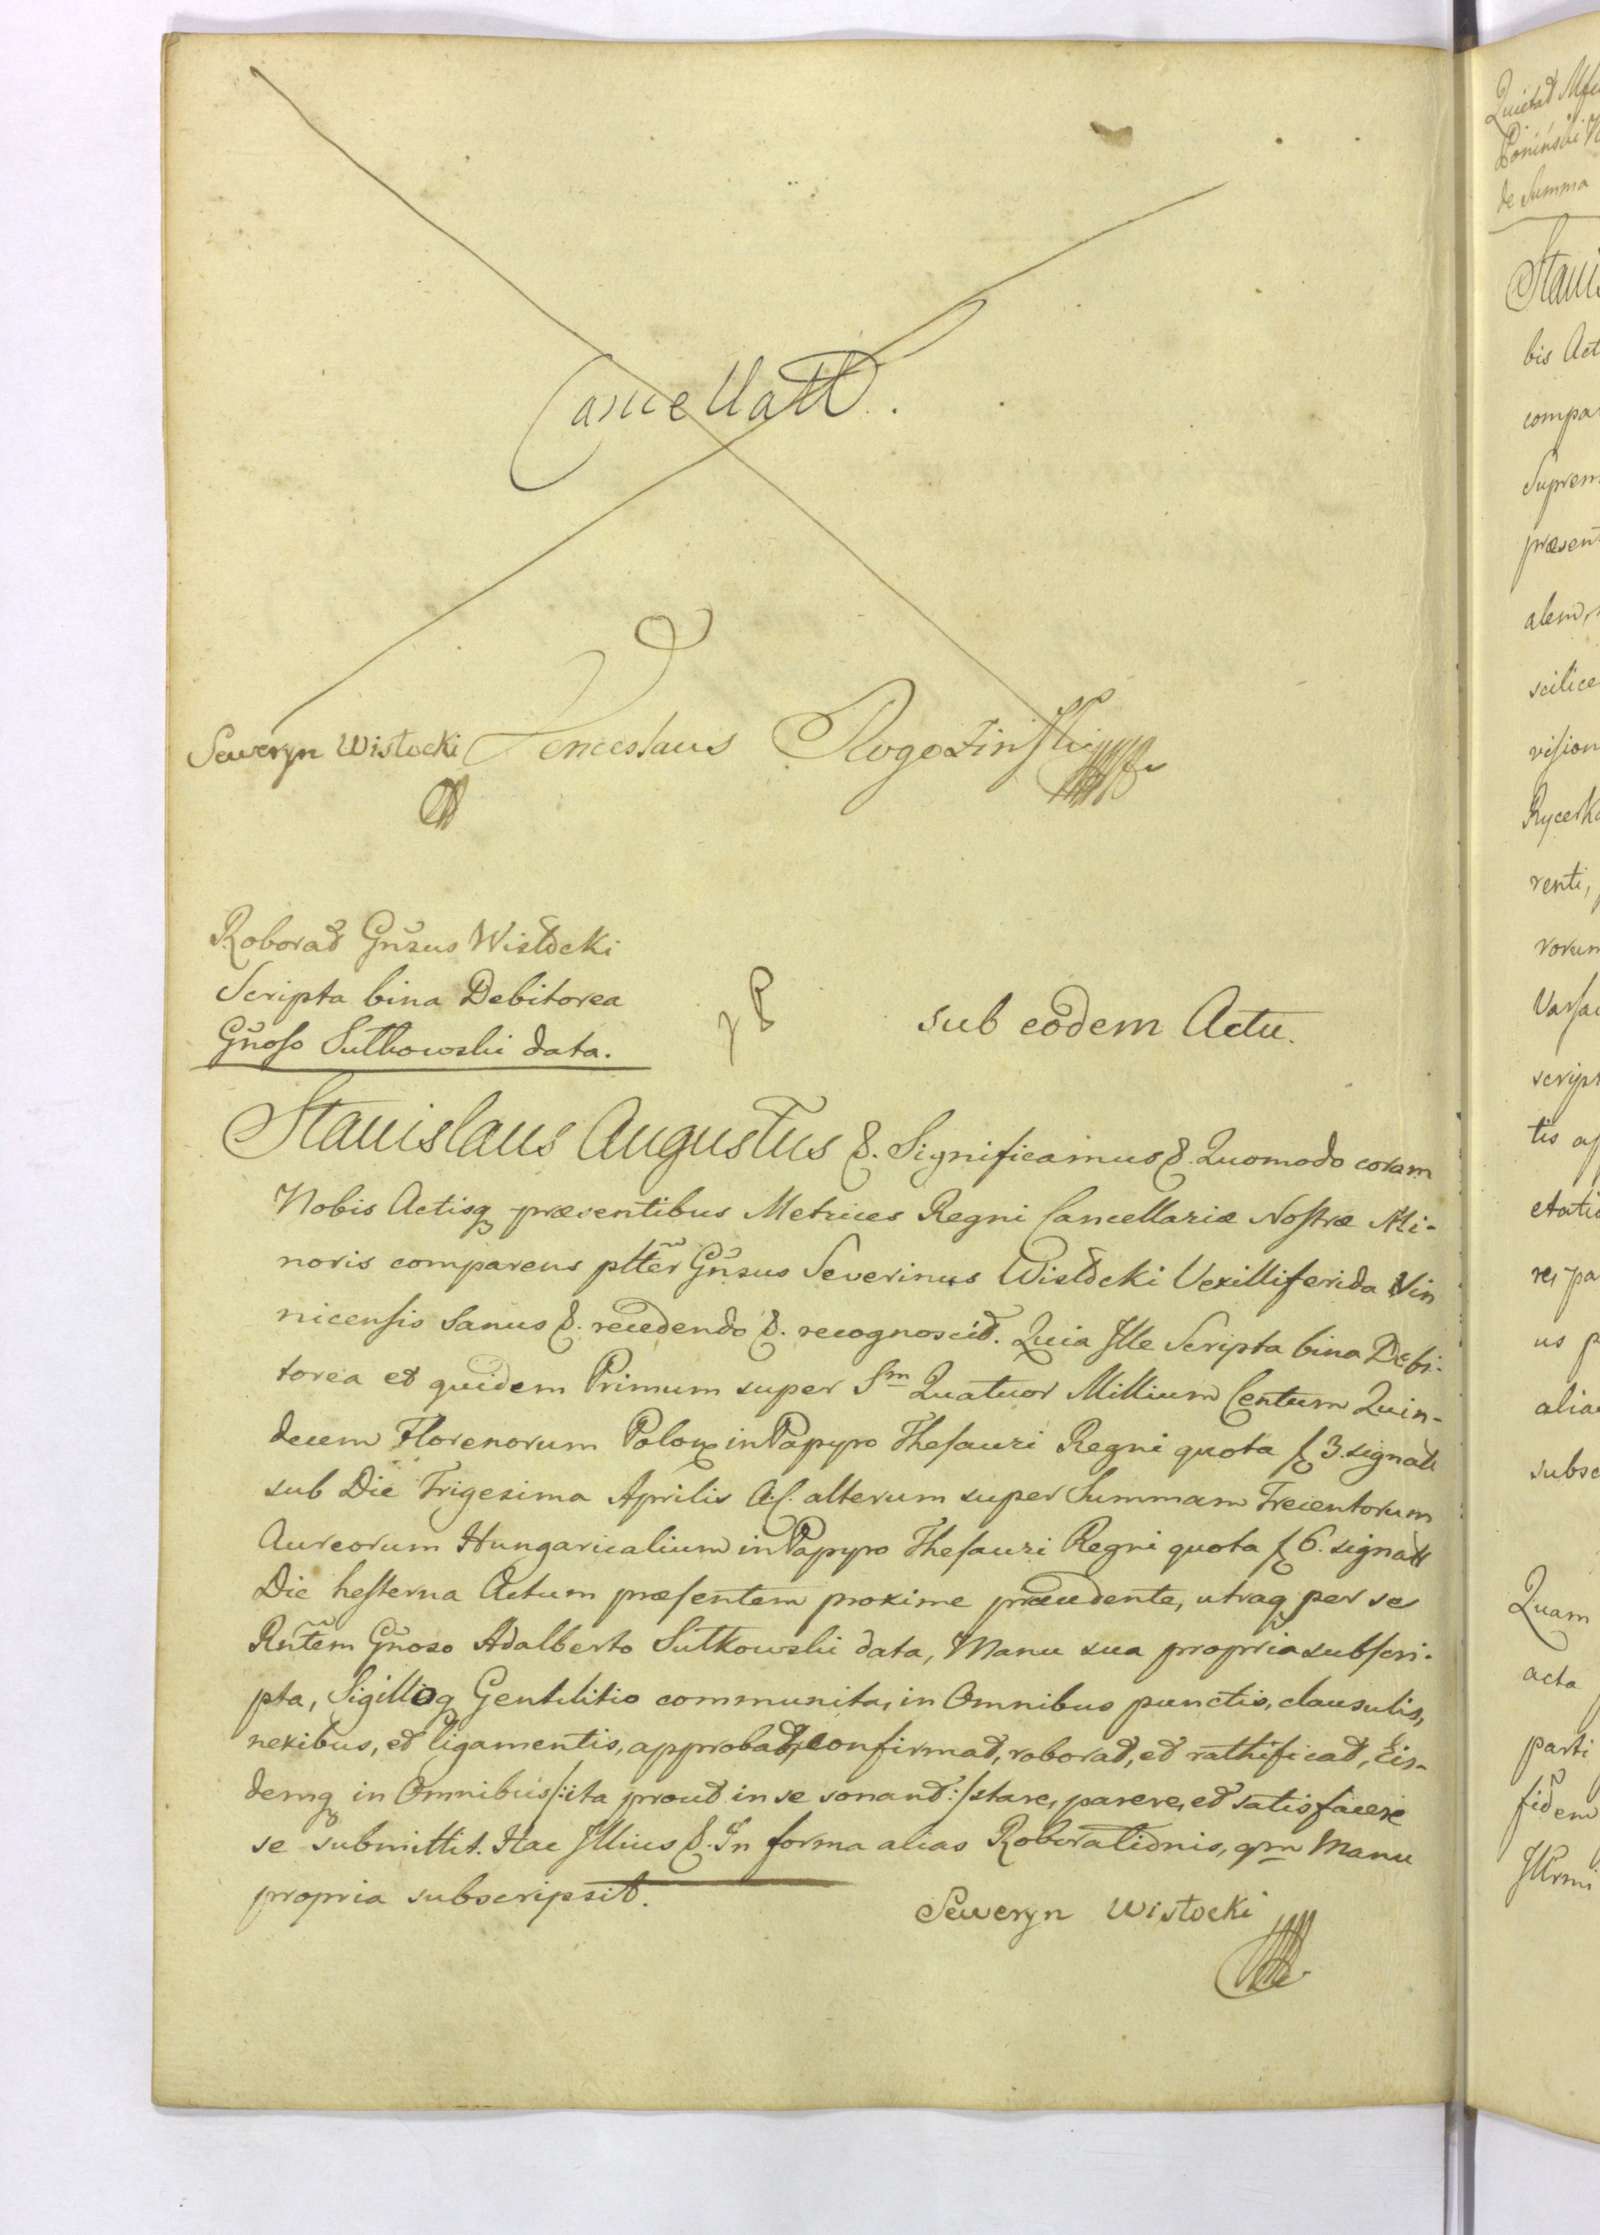 Cancellatt.
Seweryn Wisłocki Venceslaus Rogoziński
Roborat Gnsus Wisłocki
Scripta bina Debitorea
Gnoso Sutkowski data.
sub eodem Actu.
Stanislaus Augustus &. Significamus &. Quomodo coram
Nobis Actisq præsentibus Metrices Regni Cancellariæ Nostræ Mi-
noris comparens plter Gnsus Severinus Wisłocki Vexilliferida Vin
nicensis sanus &. recedendo &. recognoscit. Quia Ille Scripta bina Debi-
torea et quidem Primum super Sm Quatuor Millium Centum Quin-
decem Florenorum Polox in Papyro Thesauri Regni quota f 3. signatt
sub Die Trigesima Aprilis A.C. alterum super Summam Trecentorum
Aureorum Hungaricalium in Papyro Thesauri Regni quota f 6. signatt
Die hesterna Actum præsentem proxime præcedente, utraq per se
Rntem Gnoso Adalberto Sutkowski data, Manu sua propria subscri-
pta, Sigilloq Gentilitio communita, in Omnibus punctis, clausulis,
nexibus, et ligamentis, approbat, confirmat, roborat, et rathificat, Eis-
demq in Omnibus /:ita prout in se sonant:/ stare, parere, et satisfacere
se submittit. Hac Illius &. In forma alias Roborationis, qm Manu
propria subscripsit.
Seweryn Wisłocki
Quietat
Poniński
de Summa
Stanis
bis Act
compar
Suprem
præsent
alem,
scilice
vision
Rycerk
renti,
rorum
Varsa
script
tis
etatis
re, pa
us p
alia
subsc
Quam
acta
parti
fidem